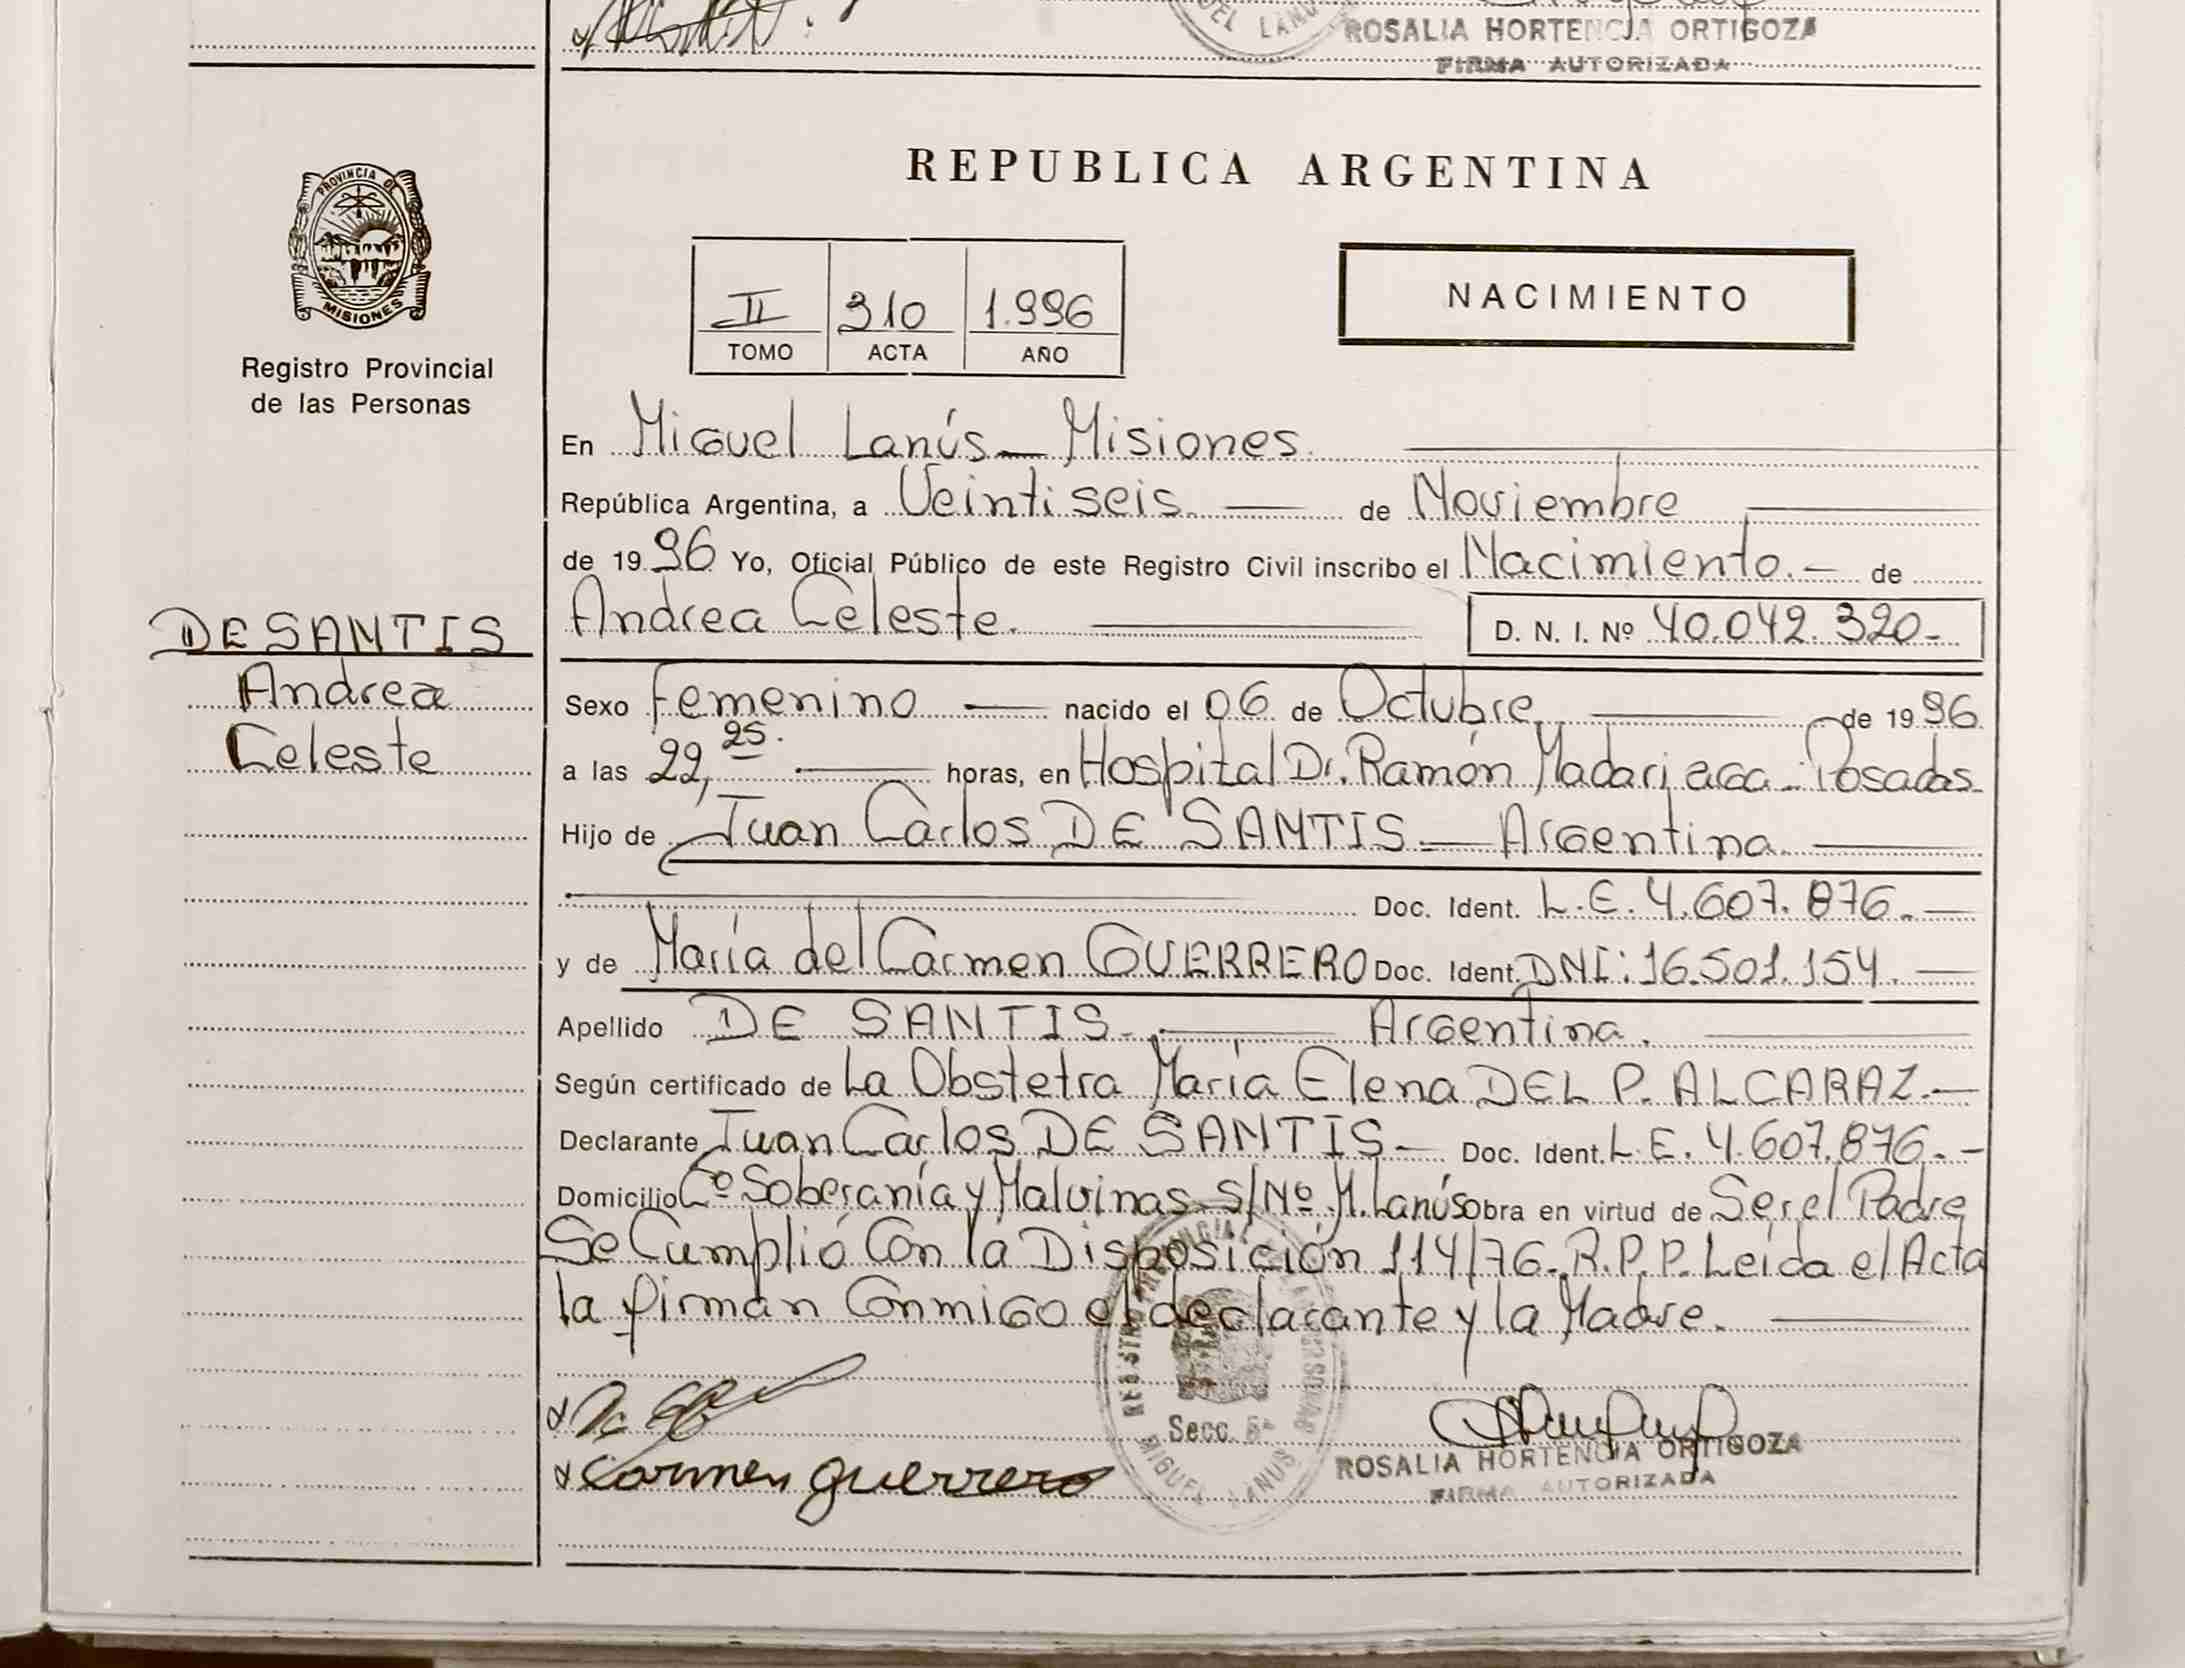 ROSALIA HORTENCIA ORTIGOZA
FIRMA AUTORIZADA
PROVINCIA DE
MISIONES
Registro Provincial
de las Personas
REPUBLICA ARGENTINA
II 310 1.996
TOMO ACTA AÑO
NACIMIENTO
En Miguel Lanús - Misiones.
República Argentina, a Veintiseis. de Noviembre
de 1996 Yo, Oficial Público de este Registro Civil inscribo el Nacimiento. - de
Andrea Celeste. D. N. I. Nº 40.042.320-
DE SANTIS
Andrea
Celeste
Sexo Femenino nacido el 06 de Octubre de 1996
a las 22,25. horas, en Hospital Dr. Ramón Madariaga - Posadas
Hijo de Juan Carlos DE SANTIS - Argentina.
Doc. Ident. L.E. 4.607.876.-
y de María del Carmen GUERRERO Doc. Ident. DNI: 16.501.154.-
Apellido DE SANTIS. Argentina.
Según certificado de La Obstetra María Elena DEL P. ALCARAZ.-
Declarante Juan Carlos DE SANTIS - Doc. Ident. L.E. 4.607.876.-
Domicilio Cº Soberanía y Malvinas S/Nº M. Lanús obra en virtud de Ser el Padre
Se Cumplió Con la Disposición 114/76. R.P.P. Leída el Acta
la firman Conmigo el declarante y la Madre.
Carmen Guerrero
REGISTRO PROVINCIAL DE LAS PERSONAS
Secc. 5ª
MIGUEL LANUS
ROSALIA HORTENCIA ORTIGOZA
FIRMA AUTORIZADA